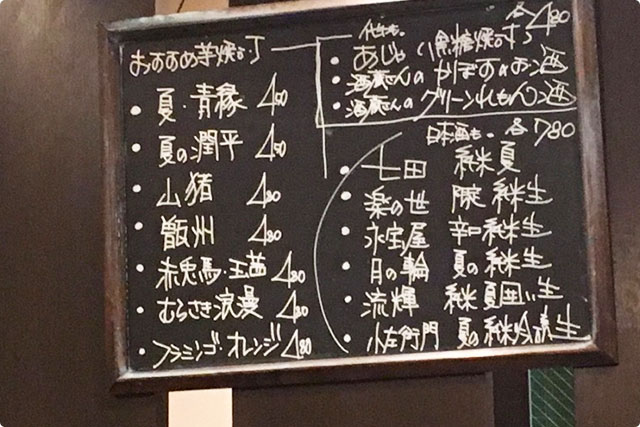 おすすめ芋焼酎
・夏・青縁 450
・夏の潤平 450
・山猪 480
・甑州 480
・赤兎馬・玉茜 480
・むらさき浪漫 480
・フラミンゴ・オレンジ 480
各480
・あじゃ (黒糖焼酎)
・酒蔵さんの かぼすのお酒
・酒蔵さんの グリーンれもんのお酒
日本酒も。各780
・七田 純米 夏
・楽の世 純生
・永宝屋 辛口純生
・月の輪 夏の純生
・流輝 純米 夏囲い生
・小左衛門 夏の純吟 生